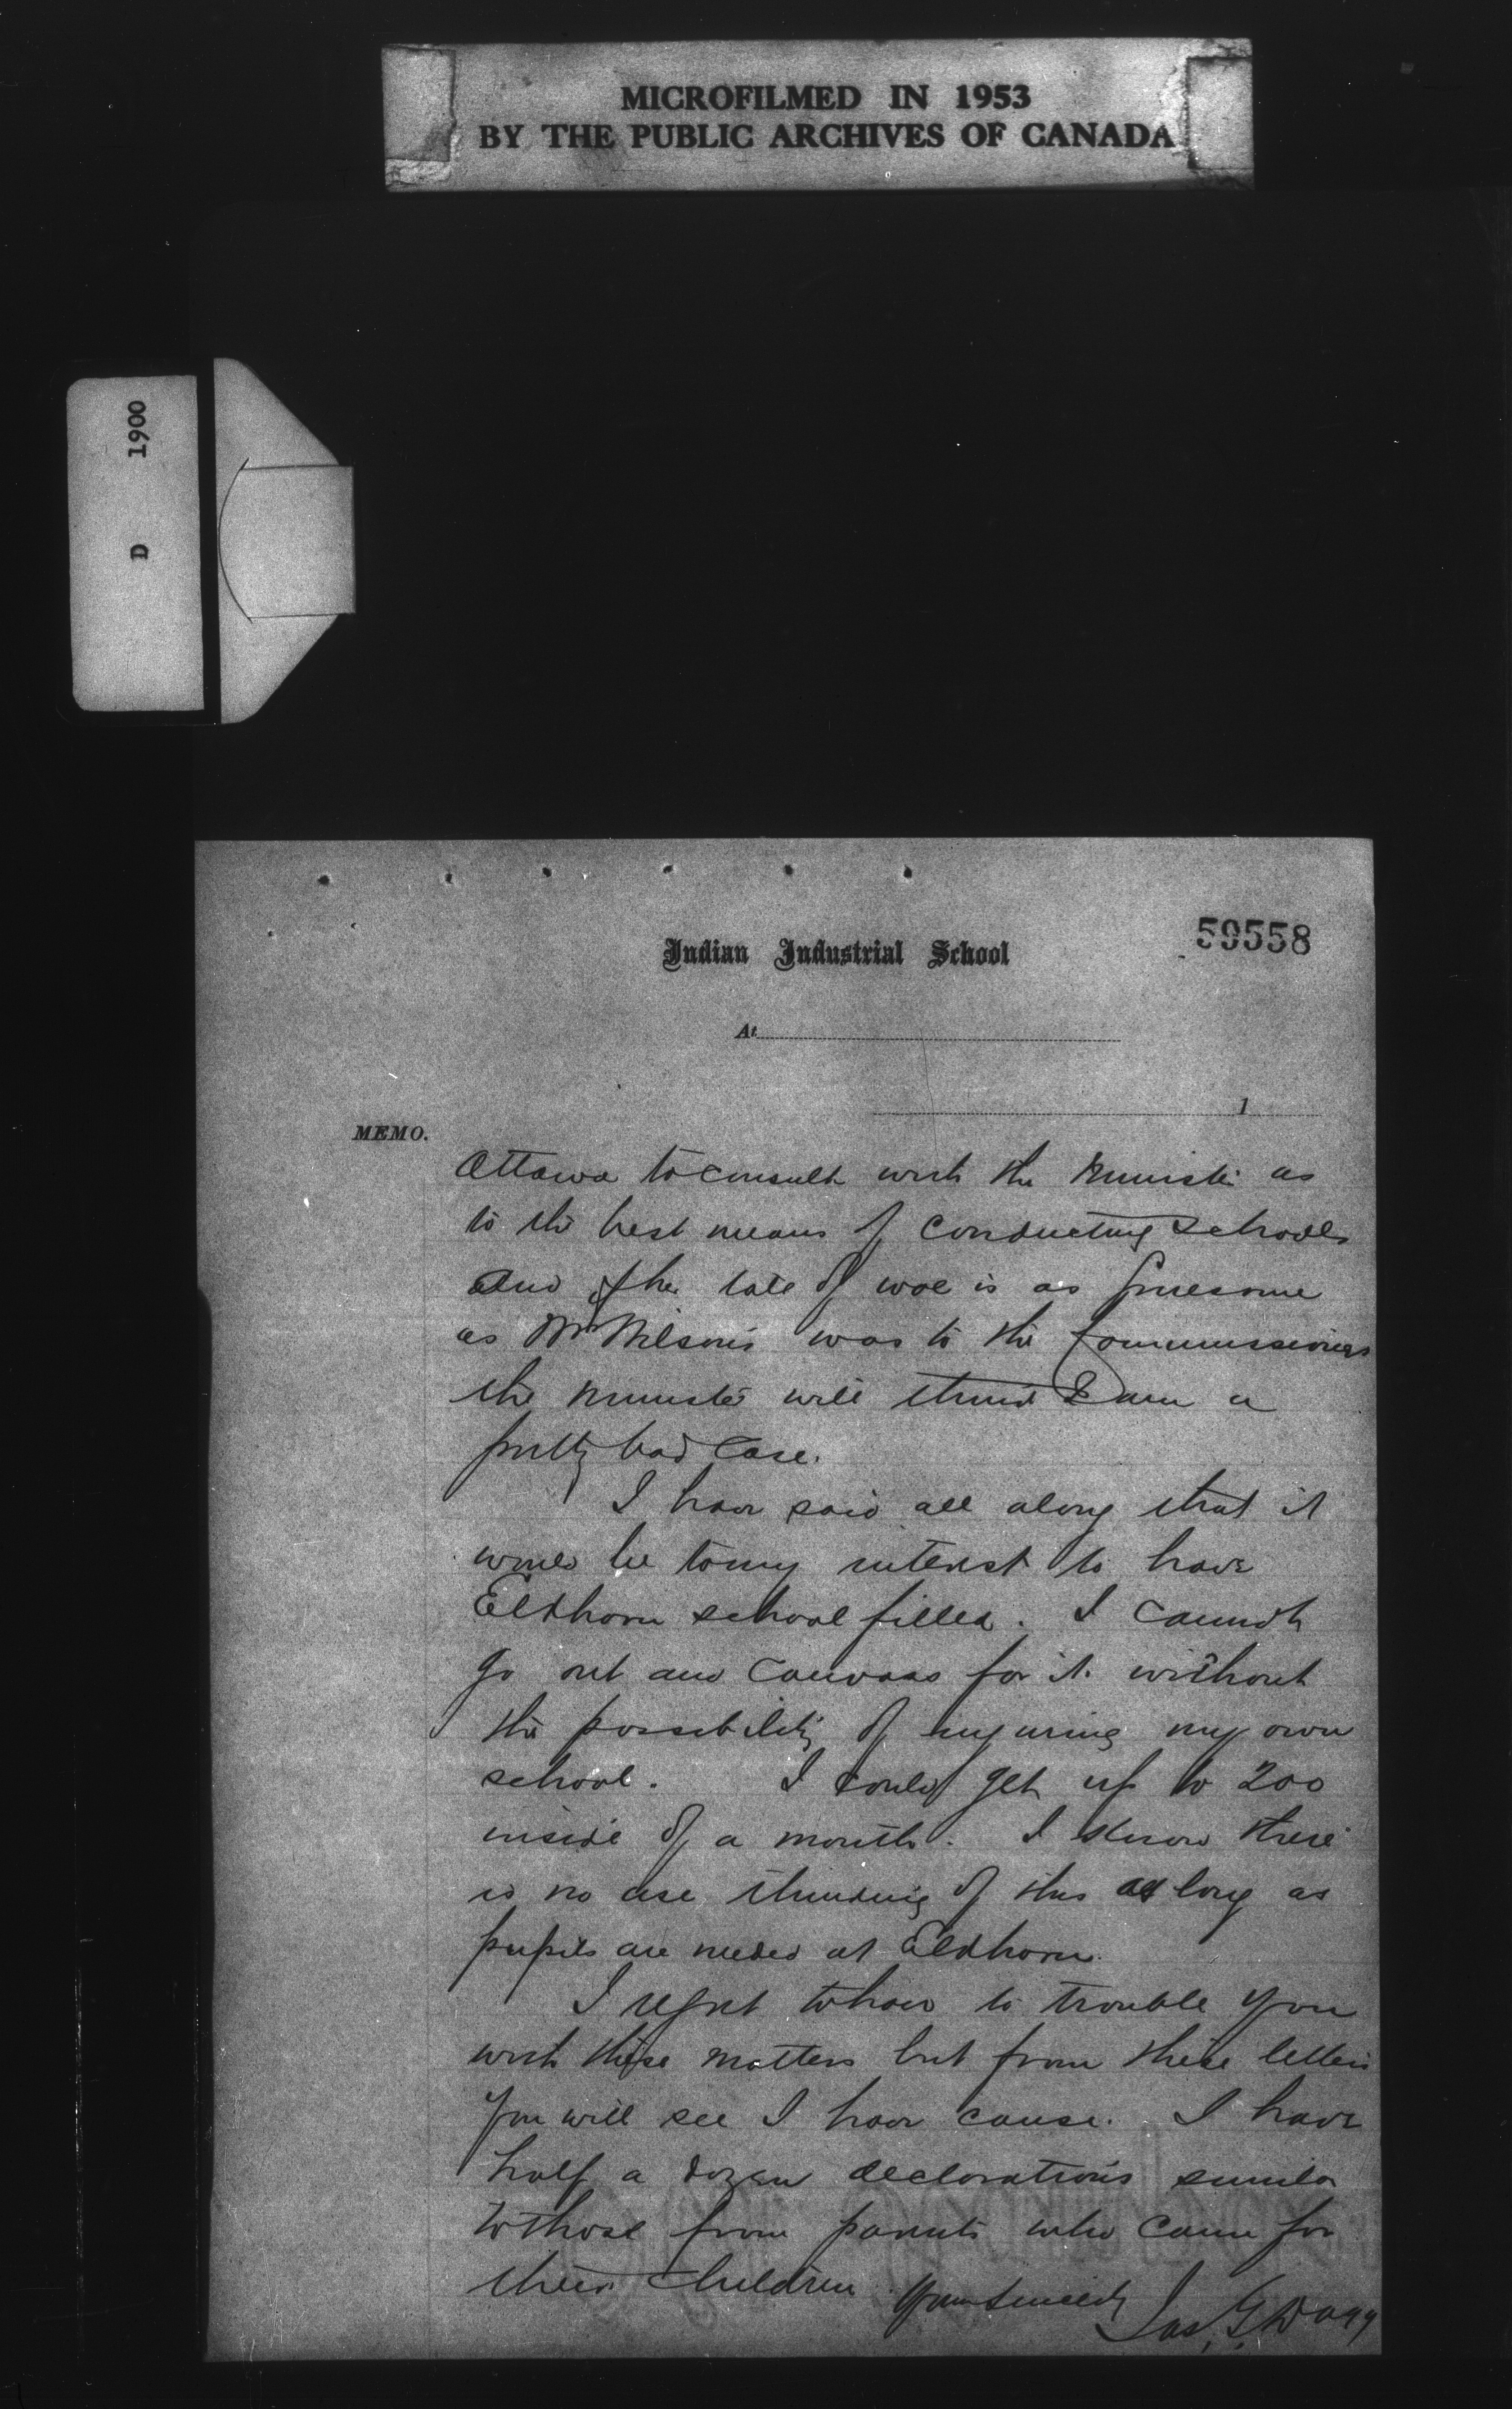 MICROFILMED IN 1953
BY THE PUBLIC ARCHIVES OF CANADA
D 1900
59558
Indian Industrial School
At
1
MEMO.
Ottawa to consult with the Minister as
to the best means of conducting schools
and if the tale of woe is as gruesome
as Mr Wilson's was to the Commissioners
the Minister will think I am a
pretty bad case.
I have said all along that it
would be to my interest to have
Elkhorn school filled. I cannot
go out and canvass for it without
the possibility of injuring my own
school. I could get up to 200
inside of a month. I know there
is no use thinking of this as long as
pupils are needed at Elkhorn.
I regret to have to trouble you
with these matters but from these letters
you will see I have cause. I have
half a dozen declarations similar
to those from parents who came for
their children. Yours sincerely
Jas. G. Dagg